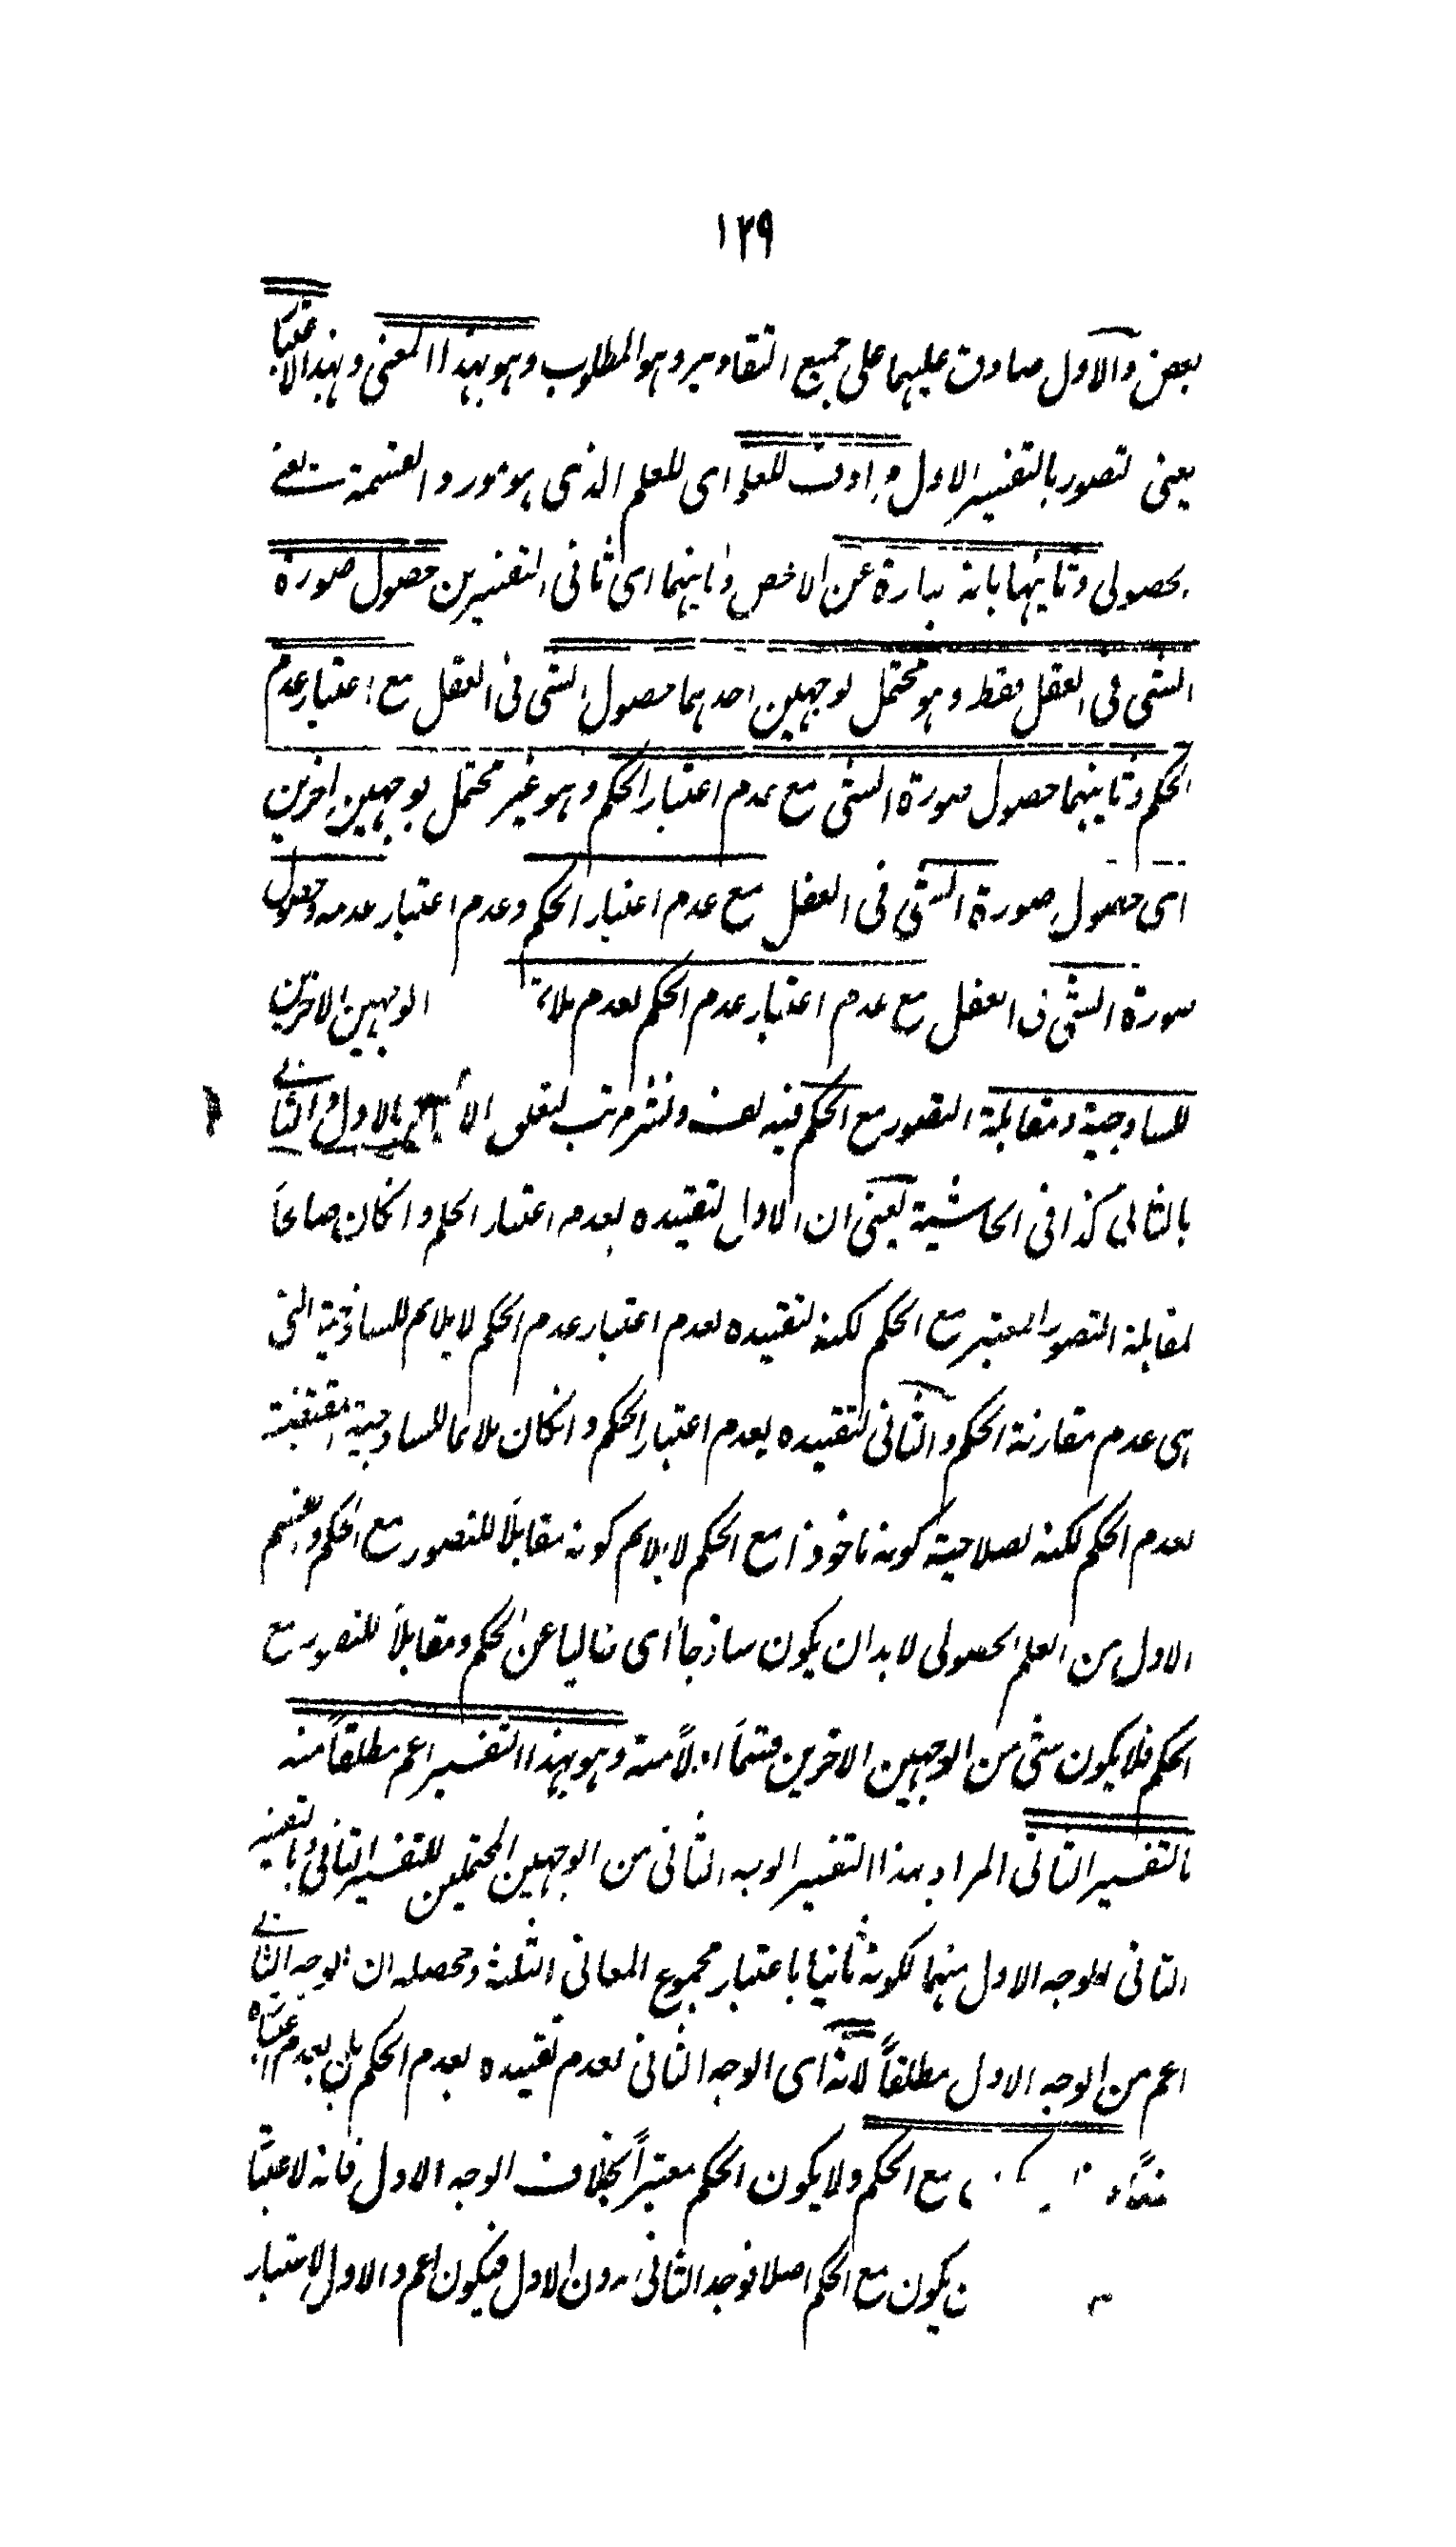 ١٢٩
بعض والاول صادق عليهما على جميع التقادير وهو المطلوب وهو بهذا المعنى وبهذا الاعتبا
يعنى لتصور بالتفسير الاول مرادف للعلم اى للعلم الذى هو مورد القسمة يعنى
لحصولى وثانيها بانه عبارة عن الاخص وثانيهما اى ثانى التفسيرين حصول صورة
الشئ فى العقل فقط وهو محتمل لوجهين احدهما حصول الشئ فى العقل مع اعتبار عدم
الحكم وثانيهما حصول صورة الشئ مع عدم اعتبار الحكم وهو غير محتمل لوجهين اخرين
اى حصول صورة الشئ فى العقل مع عدم اعتبار الحكم وعدم اعتبار عدمه وحصول
صورة الشئ فى العقل مع عدم اعتبار عدم الحكم لعدم ملائمة الوجهين الاخرين
للساذجية ومقابلة التصور مع الحكم فيه لف ونشر مرتب لتعلق الاول بالاول والثانى
بالثانى كذا فى الحاشية يعنى ان الاول لتقييده بعدم اعتبار الحكم وانكان صالحاً
لمقابلة التصور المعتبر مع الحكم لكنه لتقييده بعدم اعتبار عدم الحكم لا يلائم للساذجية التى
هى عدم مقارنة الحكم والثانى لتقييده بعدم اعتبار الحكم وانكان ملائما للساذجية المقتضية
لعدم الحكم لكنه لصلاحية كونه ماخوذا مع الحكم لا يلائم كونه مقابلاً للتصور مع الحكم والقسم
الاول من العلم الحصولى لا بد ان يكون ساذجاً اى خاليا عن الحكم ومقابلاً للتصور مع
الحكم فلا يكون شئ من الوجهين الاخرين قسماً اولاً منه وهو بهذا التفسير اعم مطلقاً منه
بالتفسير الثانى المراد بهذا التفسير الوجه الثانى من الوجهين المحتملين للتفسير الثانى وبالتفسير
الثانى الوجه الاول منهما لكونه ثانيا باعتبار مجموع المعانى الثلثة ومحصله ان الوجه الثانى
اعم من الوجه الاول مطلقاً لانه اى الوجه الثانى لعدم تقييده بعدم الحكم بل بعدم اعتباره
مع الحكم ولا يكون الحكم معتبراً بخلاف الوجه الاول فانه لاعتبا
يكون مع الحكم اصلا فوجد الثانى بدون الاول فيكون اعم والاول لاعتبار